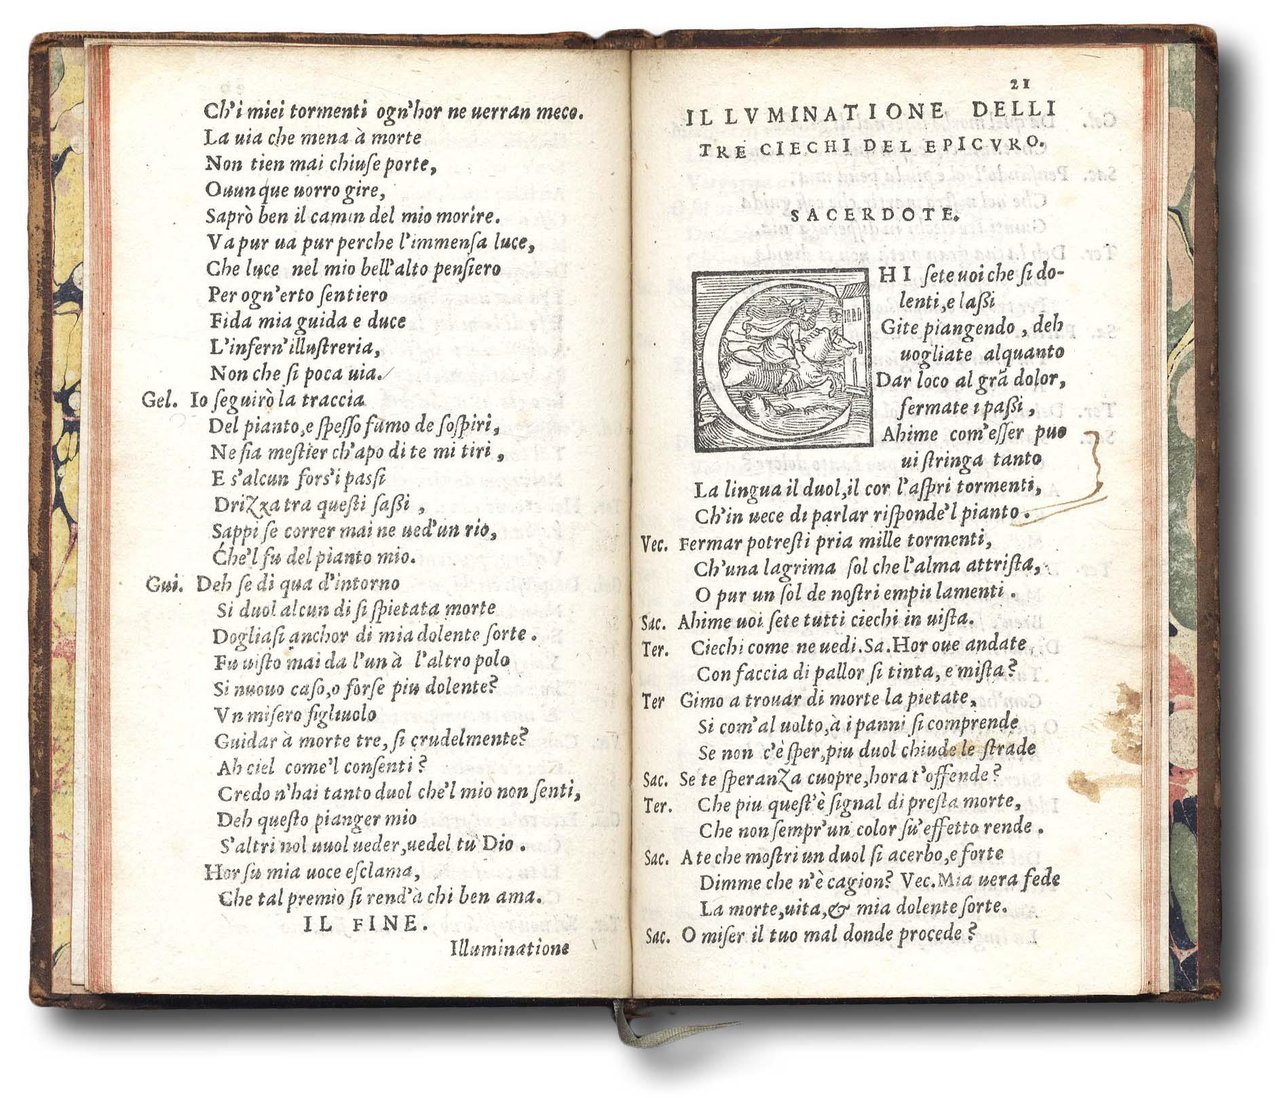 Ch'i miei tormenti ogn'hor ne uerran meco.
La uia che mena à morte
Non tien mai chiuſe porte,
Ouunque uorro gire,
Saprò ben il camin del mio morire.
Va pur ua pur perche l'immenſa luce,
Che luce nel mio bell'alto penſiero
Per ogn'erto ſentiero
Fida mia guida e duce
L'infern'illuſtreria,
Non che ſi poca uia.
Gel. Io ſeguirò la traccia
Del pianto,e ſpeſſo fumo de ſoſpiri,
Ne ſia meſtier ch'apo di te mi tiri,
E s'alcun forſ'i paſſi
Drizza tra queſti ſaßi,
Sappi ſe correr mai ne ued'un rio,
Che'l fu del pianto mio.
Gui. Deh ſe di qua d'intorno
Si duol alcun di ſi ſpietata morte
Dogliaſi anchor di mia dolente ſorte.
Fu uiſto mai da l'un à l'altro polo
Si nuouo caſo,o forſe piu dolente?
Vn miſero figliuolo
Guidar à morte tre, ſi crudelmente?
Ah ciel come'l conſenti?
Credo n'hai tanto duol che'l mio non ſenti,
Deh queſto pianger mio
S'altri nol uuol ueder,uedel tu Dio.
Hor ſu mia uoce eſclama,
Che tal premio ſi rend'à chi ben ama.
IL FINE.
Illuminatione
21
ILLVMINATIONE DELLI
TRE CIECHI DEL EPICVRO.
SACERDOTE.
C
HI ſete uoi che ſi do-
lenti,e laßi
Gite piangendo, deh
uogliate alquanto
Dar loco al grã dolor,
fermate i paßi,
Ahime com'eſſer puo
ui ſtringa tanto
La lingua il duol,il cor l'aſpri tormenti,
Ch'in uece di parlar riſponde'l pianto.
Vec. Fermar potreſti pria mille tormenti,
Ch'una lagrima ſol che l'alma attriſta,
O pur un ſol de noſtri empii lamenti.
Sac. Ahime uoi ſete tutti ciechi in uiſta.
Ter. Ciechi come ne uedi. Sa. Hor oue andate,
Con faccia di pallor ſi tinta, e miſta?
Ter Gimo a trouar di morte la pietate,
Si com'al uolto,à i panni ſi comprende
Se non c'è ſper,piu duol chiude le ſtrade
Sac. Se te ſperanza cuopre,hora t'offende?
Ter. Che piu queſt'è ſignal di preſta morte,
Che non ſempr'un color ſu'effetto rende.
Sac. A te che moſtri un duol ſi acerbo,e forte
Dimme che n'è cagion? Vec. Mia uera fede
La morte,uita,& mia dolente ſorte.
Sac. O miſer il tuo mal donde procede?